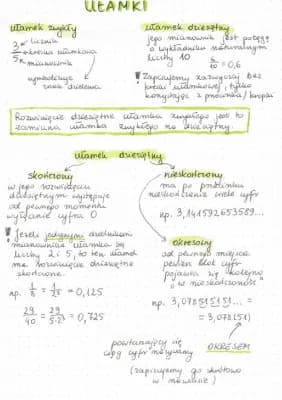 UŁAMKI
ułamek zwykły
licznik
3
5
kreska ułamkowa
mianownik
symbolizuje
znak dzielenia
ułamek dziesiętny
jego mianownik jest potęgą
o wykładniku naturalnym
liczby 10
6/10 = 0,6
! Zapisujemy zazwyczaj bez
kreski ułamkowej, tylko
korzystając z przecinka/kropki
Rozwinięcie dziesiętne ułamka zwykłego jest to
zamiana ułamka zwykłego na dziesiętny.
ułamek dziesiętny
skończony
w jego rozwinięciu
dziesiętnym występuje
od pewnego momentu
wyłącznie cyfra 0
! Jeżeli jedynymi dzielnikami
mianownika ułamka są
liczby 2 i 5, to ten ułamek
ma rozwinięcie dziesiętne
skończone.
np. 1/8 = 1/2³ = 0,125
29/40 = 29/5·2³ = 0,725
nieskończony
ma po przecinku
nieskończenie wiele cyfr
np. 3,141592653589...
okresowy
od pewnego miejsca
pewien blok cyfr
pojawia się kolejno
"w nieskończoność"
np. 3,078515151... =
= 3,078(51)
powtarzający się
ciąg cyfr nazywamy
OKRESEM
(zapisujemy go skrótowo
w nawiasie)